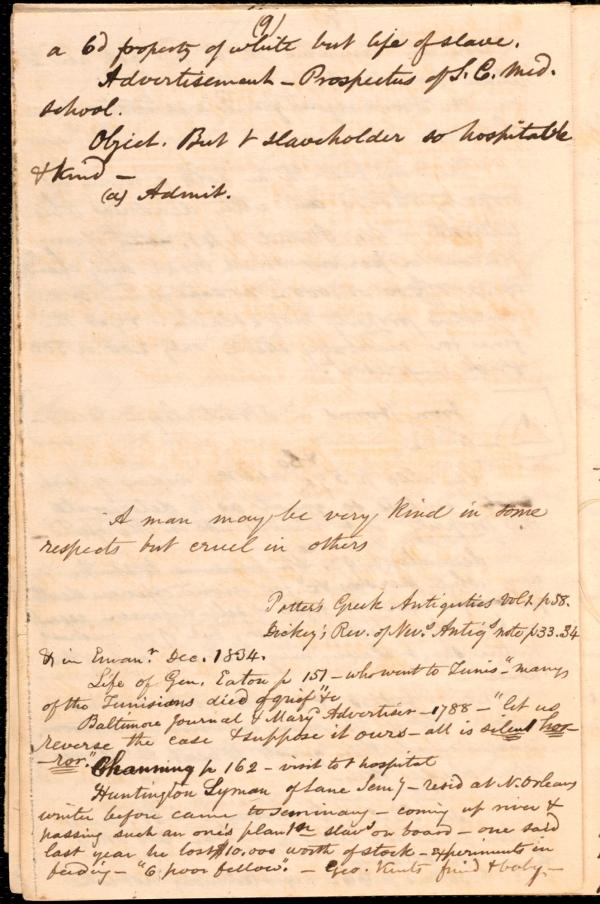 9)
a 6d property of white but life of slave.
Advertisement – Prospectus of S. C. Med.
School.
Object. But t slaveholder so hospitable
& kind –
(a) Admit.
A man may be very kind in some
respects but cruel in others
Potter's Greek Antiquities Vol 1. p 58.
Dickey's Rev. of Nev.s Antiq.s note p 33. 34
& in Eman.r Dec. 1834.
Life of Gen. Eaton p 151 – who went to Tunis – "many
of the Tunisians died of grief" &c
Baltimore Journal & Mary.d Advertiser – 1788 – "let us
reverse the case & suppose it ours – all is silent hor-
-ror."
Channing p 162 – visit to t hospital
Huntington Lyman of Lane Sem.y – resid at N. Orleans
winter before came to Seminary – coming up river &
passing such an one's plan slavs on board – one said
last year he lost $10.000 worth of stock – experiments in
feeding – "6 poor fellows". – Geo. Kents frind & baby –